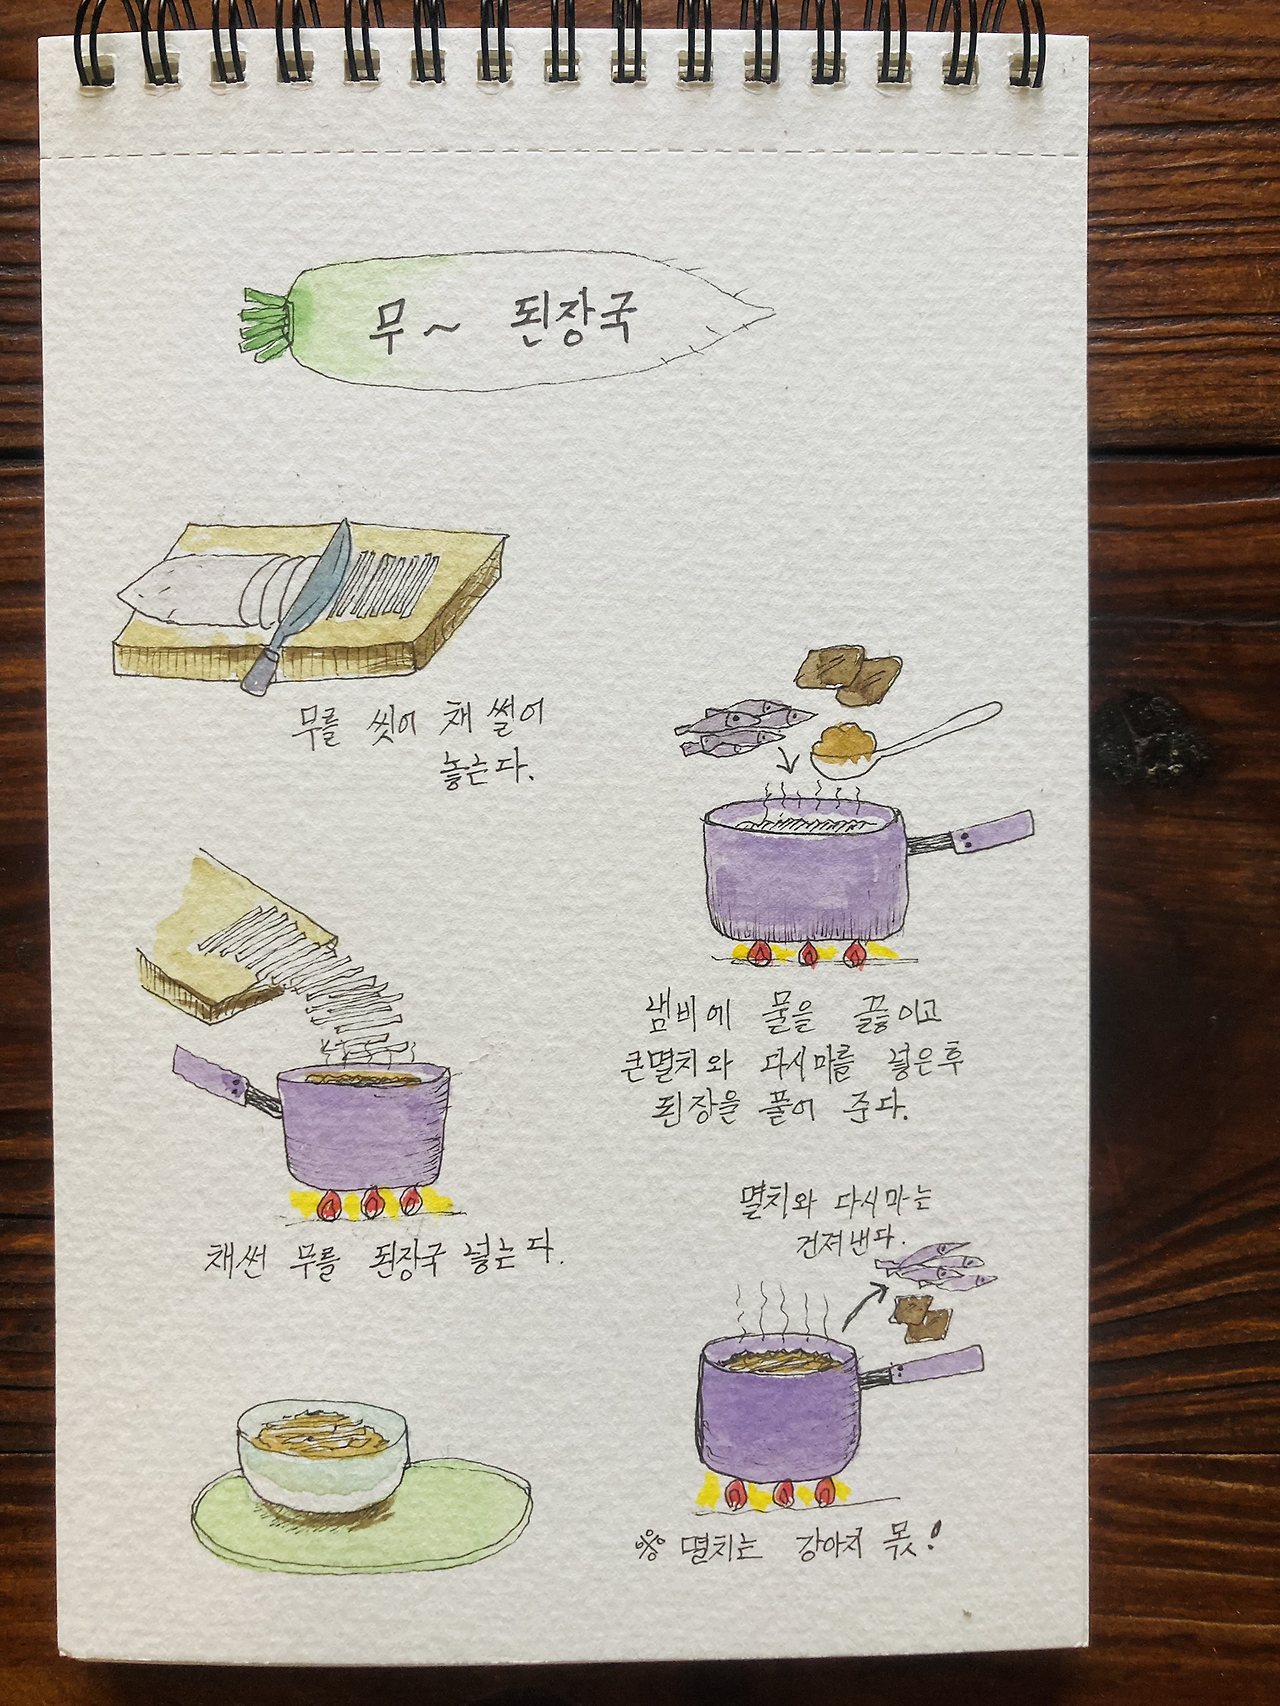 무~ 된장국
무를 씻어 채 썰어
놓는다.
냄비에 물을 끓이고
큰멸치와 다시마를 넣은후
된장을 풀어 준다.
채썬 무를 된장국 넣는다.
멸치와 다시마는
건져낸다.
※ 멸치는 강아지 몫!